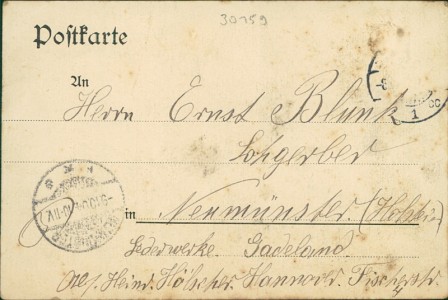 30159
Postkarte
An
Herrn Ernst Blunk
Lohgerber
in Neumünster (Holstein)
Lederwerke Gadeland.
Heinr. Hölscher Hannover. Fischerstr